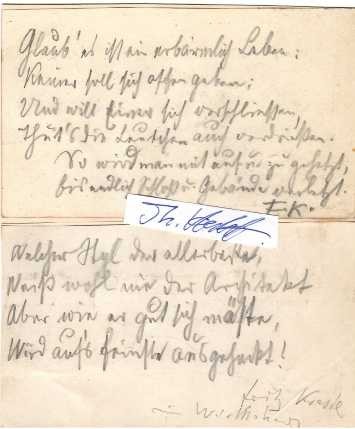 Glaub' es ist ein erbärmlich Leben:
Keiner soll sich offen geben;
Und will Einer sich verschliessen,
Thut's die Leutchen auch verdrießen.
So wird man mit auf u. zu gehetzt,
bis endlich Schloß u. Gebände verletzt.
F. K.
Th.
Welcher Styl der allerbeste,
Weiß wohl nie der Architekt
Aber wie er gut sich mäste,
Wird auf's feinste ausgeheckt!
Fritz
im Wirthshaus